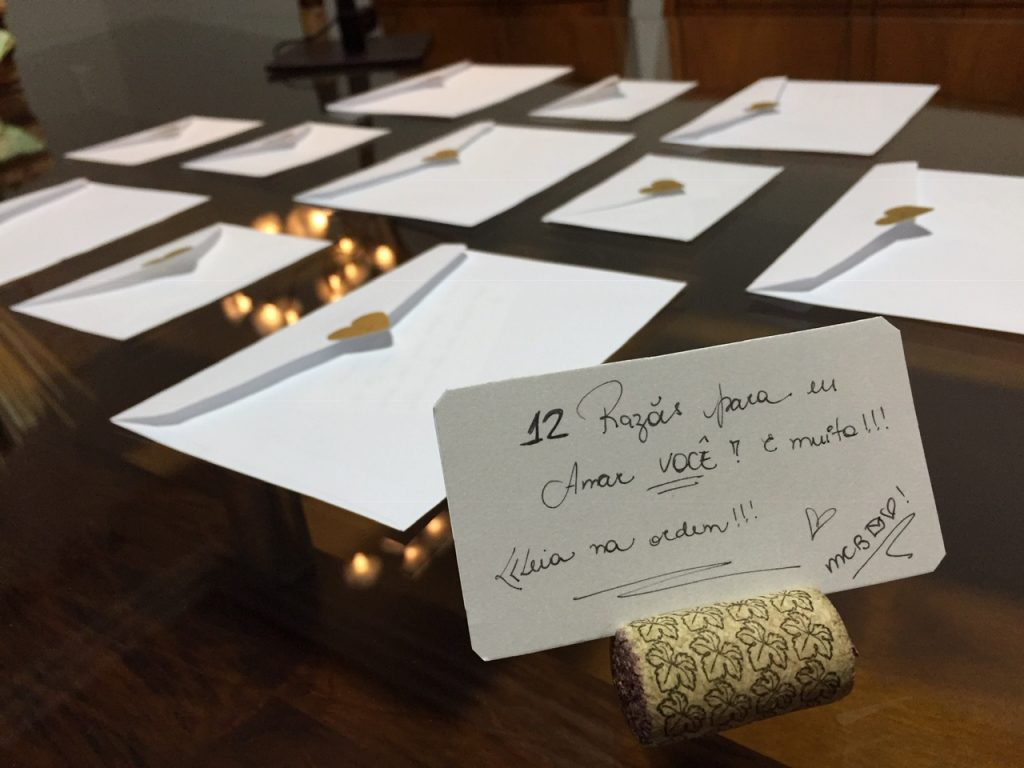 12 Razões para eu
Amar VOCÊ? É muito!!!
Leia na ordem!!!
MCB